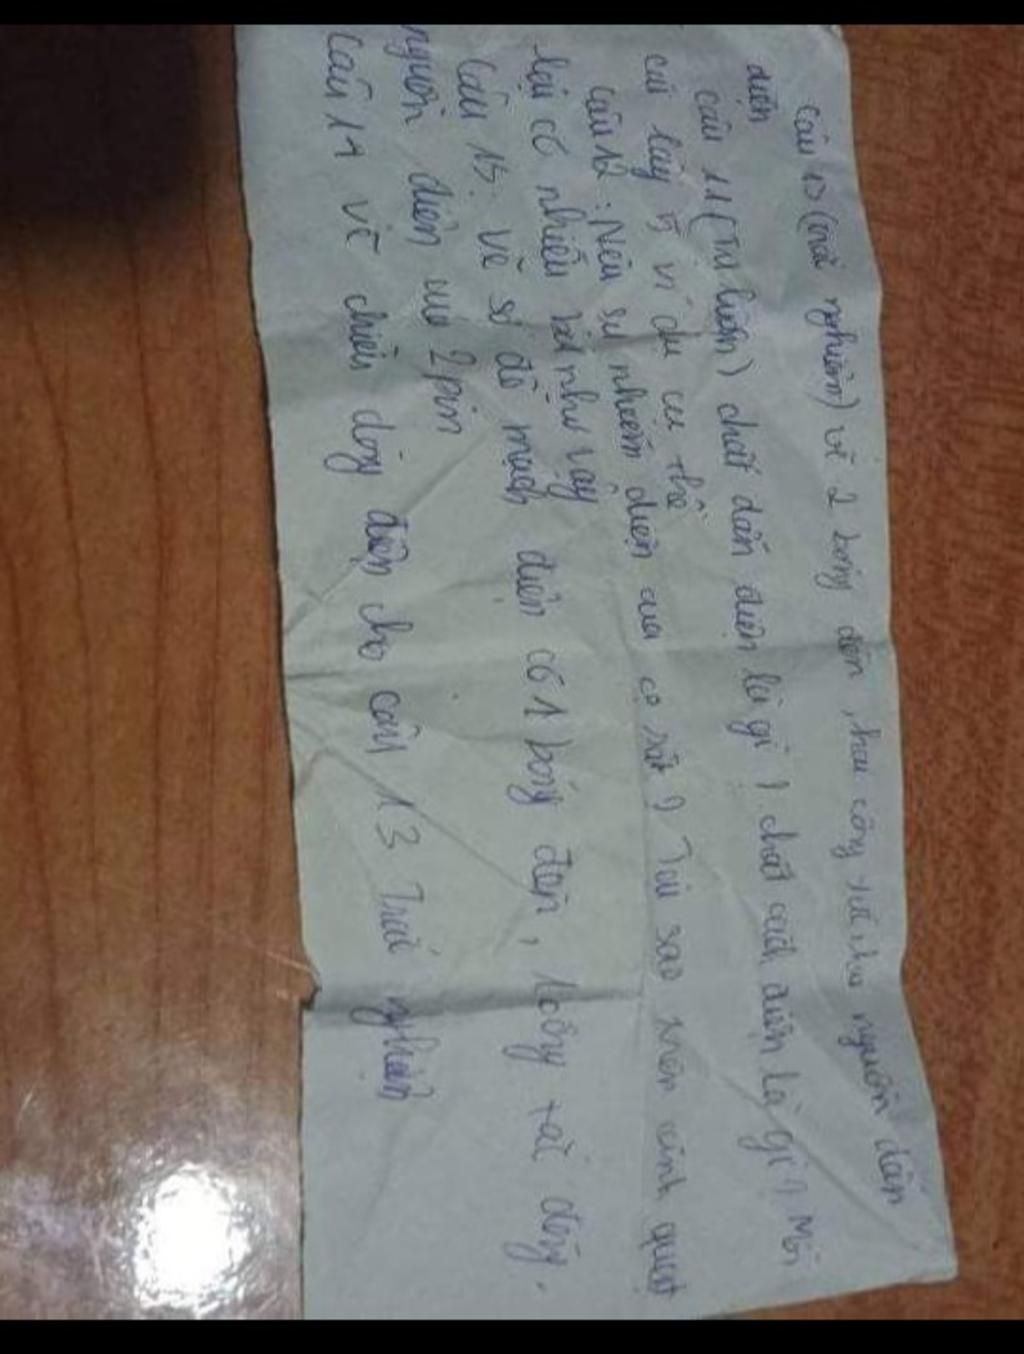 câu 13 (trắc nghiệm) vẽ 2 bóng đèn, hai công tắc, hai nguồn dẫn
điện
câu 11 (Tự luận) chất dẫn điện là gì? chất cách điện là gì? Mỗi
cái lấy 5 ví dụ cụ thể
câu 12: Nêu sự nhiễm điện của cọ xát? Tại sao trên cánh quạt
lại có nhiều bụi như vậy
Câu 13: vẽ sơ đồ mạch điện có 1 bóng đèn, 1 công tắc đóng,
nguồn điện 2 pin
Câu 14 vẽ chiều dòng điện cho câu 13 Trắc nghiệm